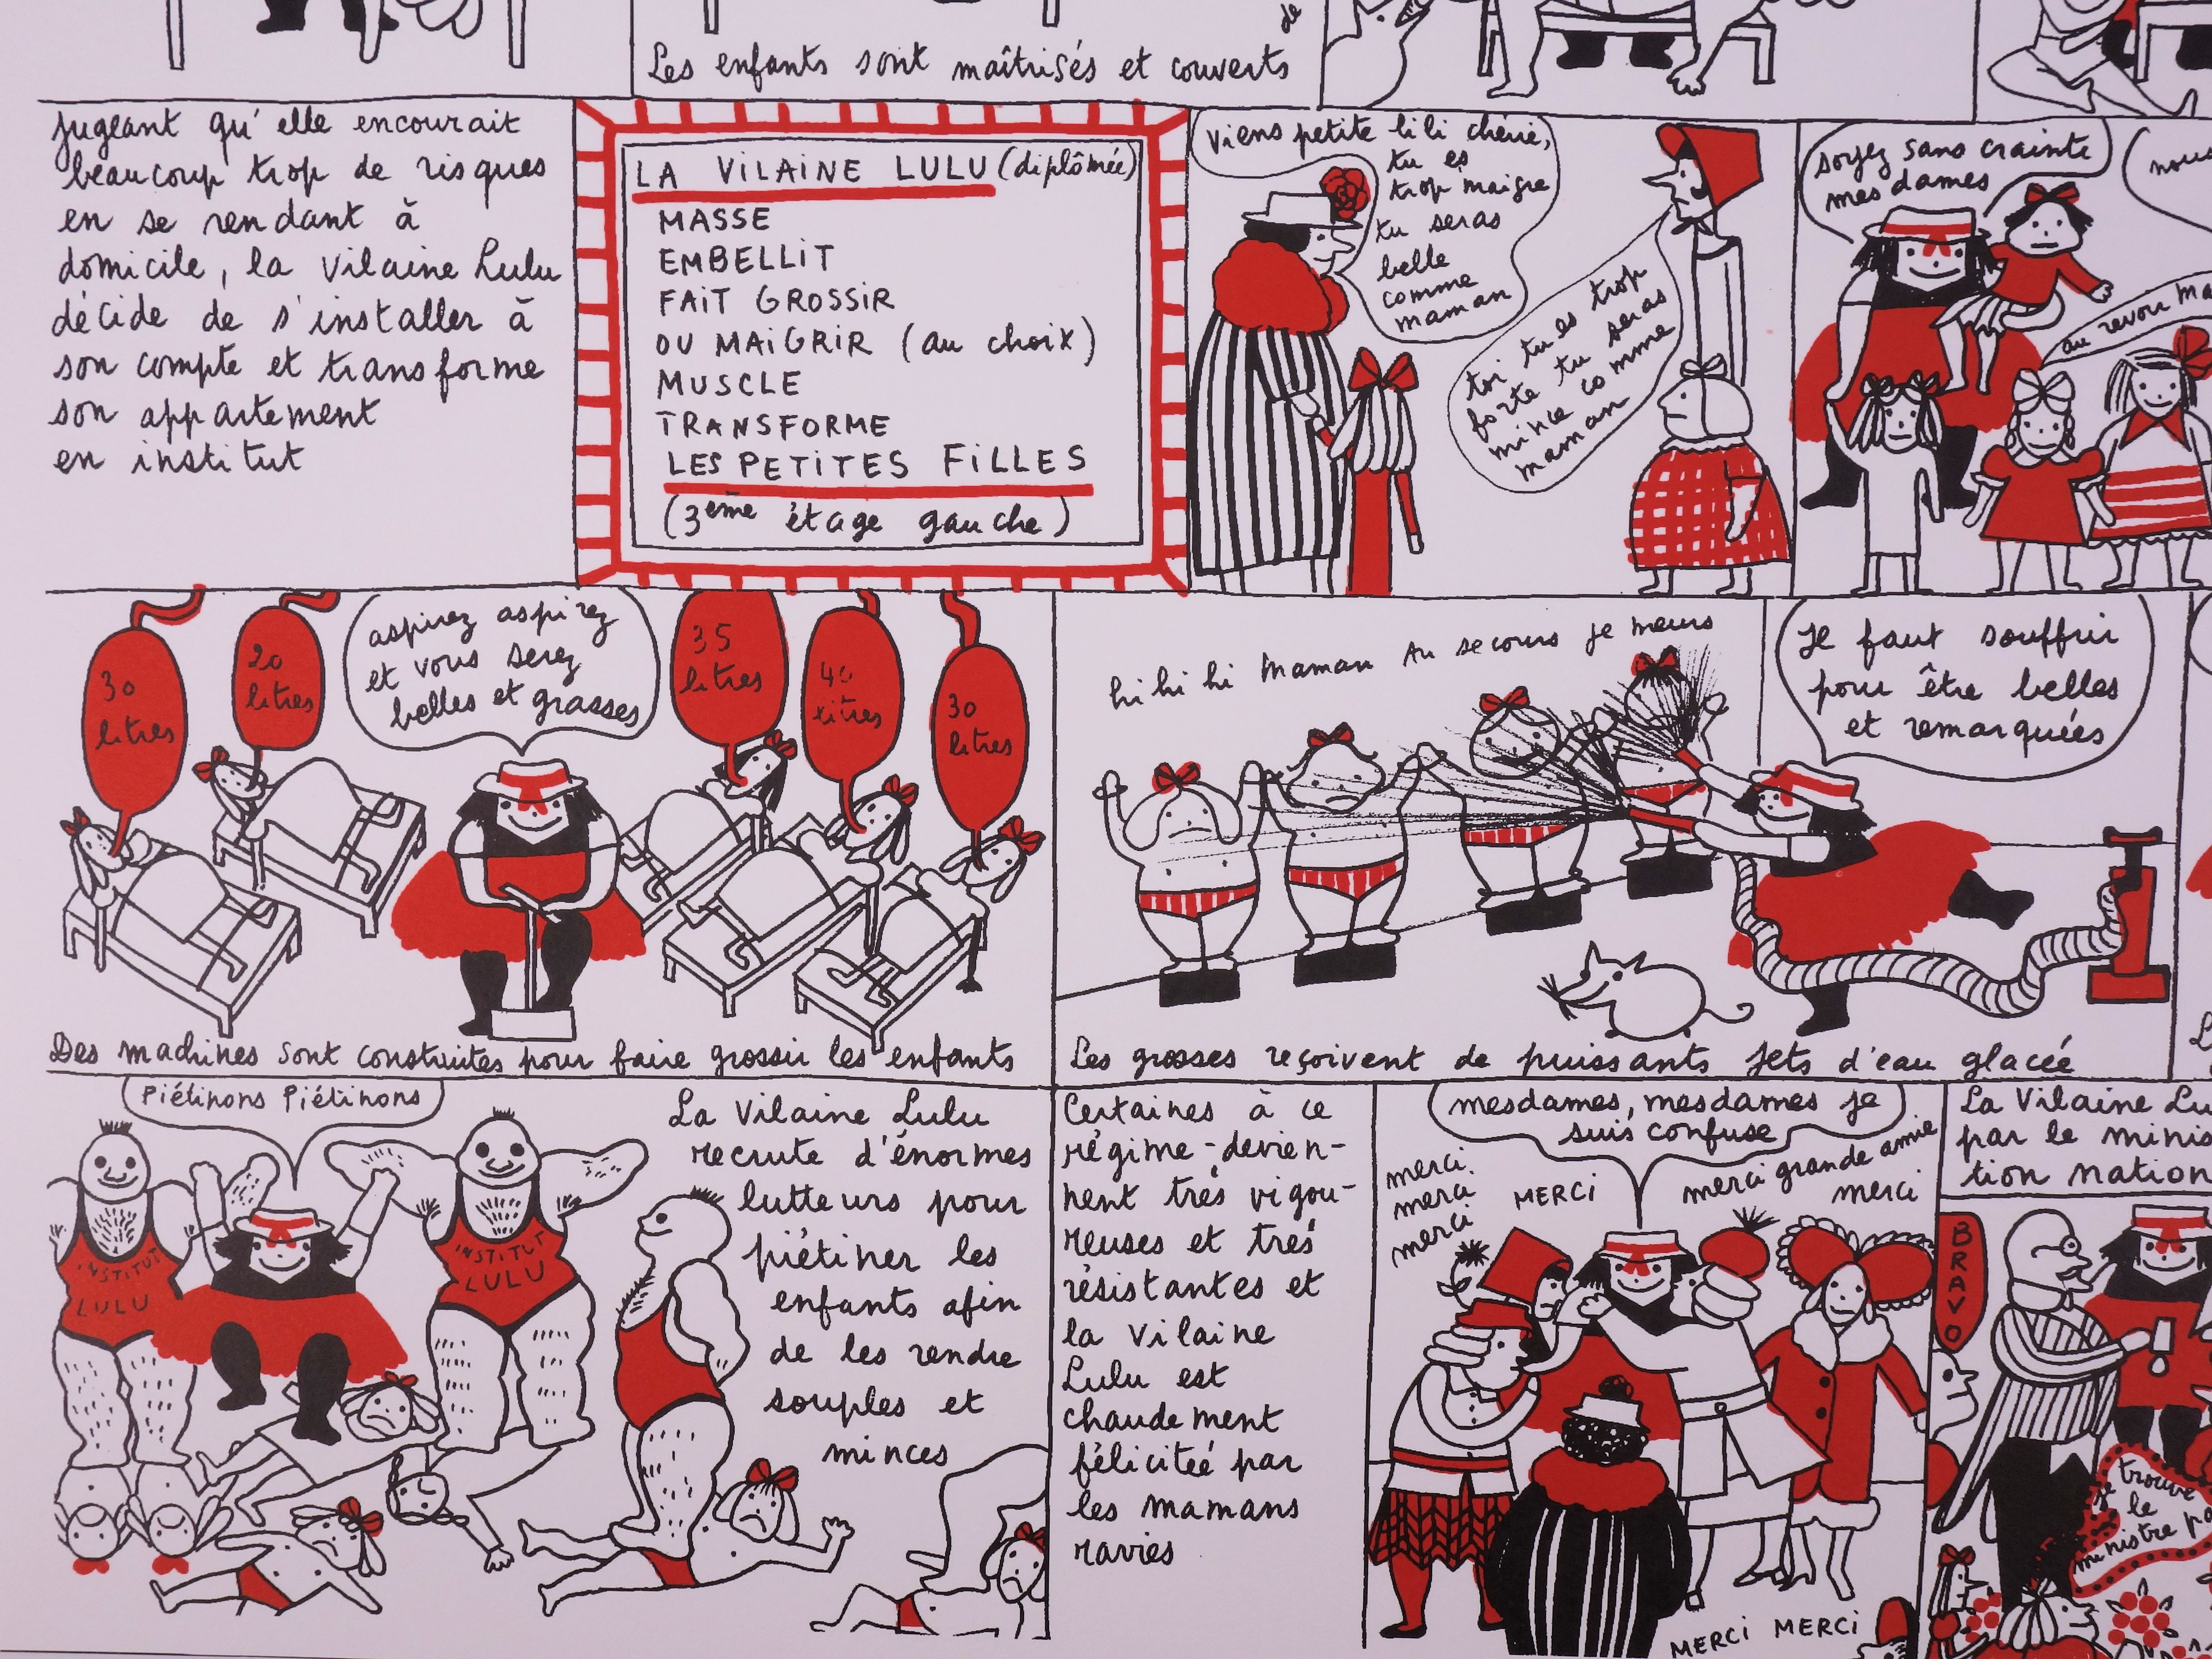 de
Les enfants sont maîtrisés et couverts
jugeant qu'elle encourait
beaucoup trop de risques
en se rendant à
domicile, la Vilaine Lulu
décide de s'installer à
son compte et transforme
son appartement
en institut
LA VILAINE LULU (diplômée)
MASSE
EMBELLIT
FAIT GROSSIR
OU MAIGRIR (au choix)
MUSCLE
TRANSFORME
LES PETITES FILLES
(3ème étage gauche)
Viens petite lili chérie,
tu es
trop maigre
tu seras
belle
comme
maman
toi tu es trop
forte tu seras
mince comme
maman
soyez sans crainte
mesdames
nous
au revoir ma
30
litres
20
litres
aspirez aspirez
et vous serez
belles et grasses
35
litres
40
litres
30
litres
Des machines sont construites pour faire grossir les enfants
hi hi hi Maman Au secours je meurs
Il faut souffrir
pour être belles
et remarquées
Les grosses reçoivent de puissants jets d'eau glacée
Piétinons Piétinons
INSTITUT
LULU
INSTITUT
LULU
La Vilaine Lulu
recrute d'énormes
lutteurs pour
piétiner les
enfants afin
de les rendre
souples et
minces
Certaines à ce
régime-devien-
nent très vigou-
reuses et très
résistantes et
la Vilaine
Lulu est
chaudement
félicitée par
les mamans
ravies
mesdames, mesdames je
suis confuse
merci
merci
merci
MERCI
merci grande amie
merci
MERCI MERCI
La Vilaine Lu
par le minis
tion nation
BRAVO
je trouve
le
ministre pa